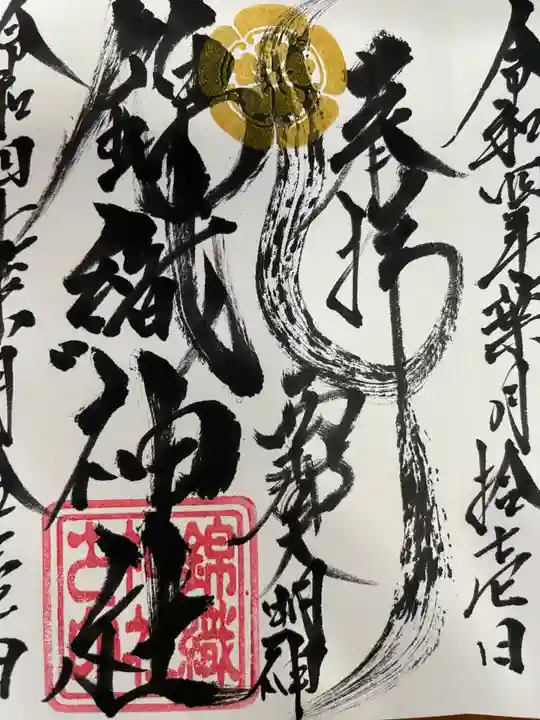 令和四年葉月拾壱日
奉拝
大明神
錦織神社
錦織
神社
令和四年